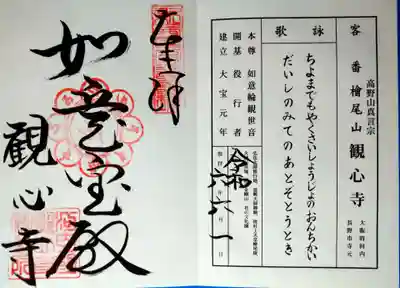 高野山真言宗
客番 檜尾山 観心寺
大阪府河内
長野市寺元
詠歌
ちよまでもやくさいしようじよのおんちかい
だいしのみてのあとぞとうとき
本尊 如意輪観世音
開基 役行者
建立 大宝元年
令和 六 六 一 日
奉拝
如意宝殿
観心寺